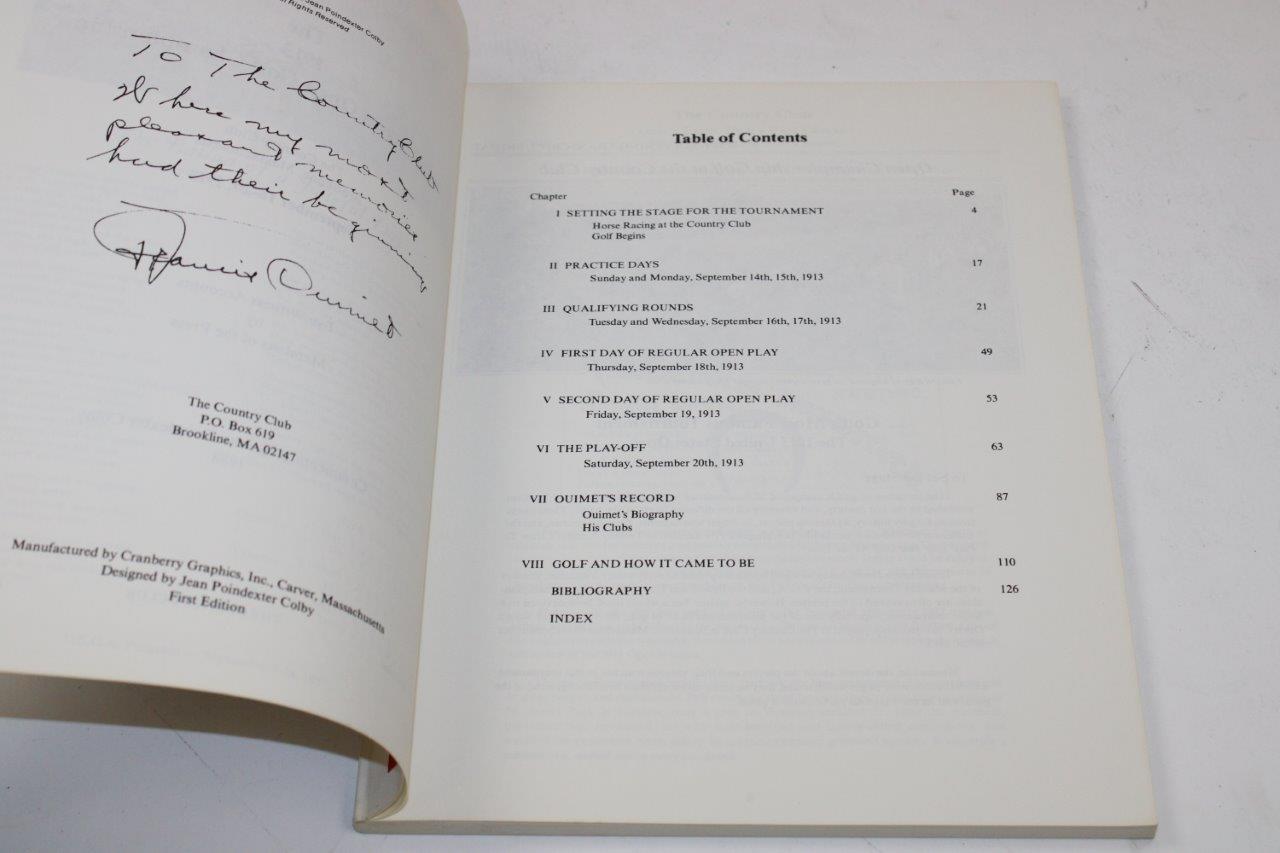 Jean Poindexter Colby
Rights Reserved
To The Country Club
Where my most
pleasant memories
had their beginnings
Francis Ouimet
The Country Club
P.O. Box 619
Brookline, MA 02147
Manufactured by Cranberry Graphics, Inc., Carver, Massachusetts
Designed by Jean Poindexter Colby
First Edition
Table of Contents
Chapter Page
I SETTING THE STAGE FOR THE TOURNAMENT 4
Horse Racing at the Country Club
Golf Begins
II PRACTICE DAYS 17
Sunday and Monday, September 14th, 15th, 1913
III QUALIFYING ROUNDS 21
Tuesday and Wednesday, September 16th, 17th, 1913
IV FIRST DAY OF REGULAR OPEN PLAY 49
Thursday, September 18th, 1913
V SECOND DAY OF REGULAR OPEN PLAY 53
Friday, September 19, 1913
VI THE PLAY-OFF 63
Saturday, September 20th, 1913
VII OUIMET'S RECORD 87
Ouimet's Biography
His Clubs
VIII GOLF AND HOW IT CAME TO BE 110
BIBLIOGRAPHY 126
INDEX